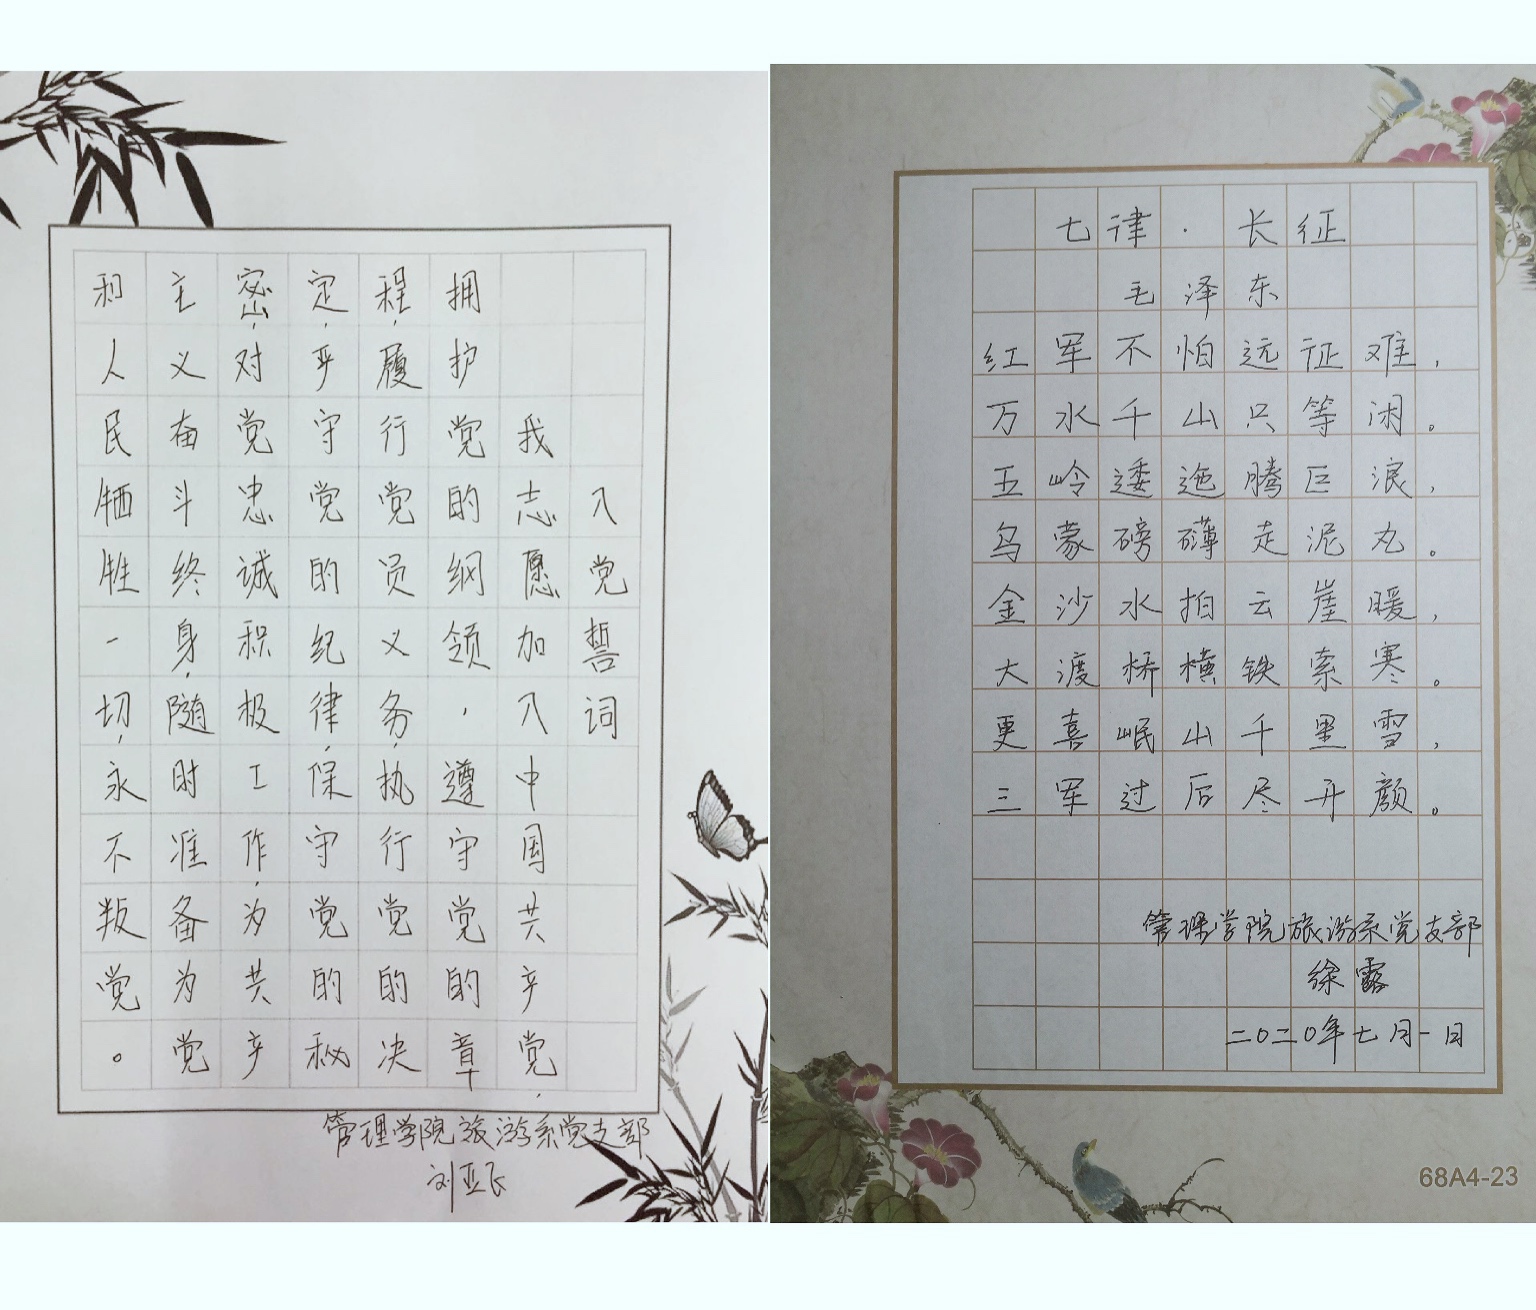 入党誓词
我志愿加入中国共产党,
拥护党的纲领,遵守党的章
程,履行党员义务,执行党的决
定,严守党的纪律,保守党的秘
密,对党忠诚积极工作,为共产
主义奋斗终身,随时准备为党
和人民牺牲一切,永不叛党。
管理学院旅游系党支部
刘亚
七律·长征
毛泽东
红军不怕远征难,
万水千山只等闲。
五岭逶迤腾巨浪,
乌蒙磅礴走泥丸。
金沙水拍云崖暖,
大渡桥横铁索寒。
更喜岷山千里雪,
三军过后尽开颜。
管理学院旅游系党支部
徐露
二〇二〇年七月一日
68A4-23